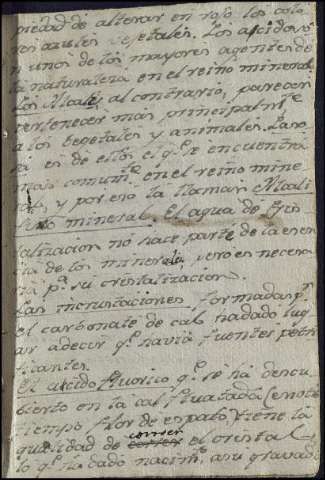 piedad de alterar en rojo los colo
res azules vejetales. Los ascidos so
n unos de los mayores agentes de
la naturaleza en el reino mineral
Los Alcalis al contrario, parecen
pertenecer mas principalm.te
a los begetales y animales. La so
sa es de ellos el q.e se encuentra
mas comunm.te en el reino mine
ral, y por eso la llaman Alcali
fixo mineral. El agua de Cris
talizacion no hace parte de la esen
cia de los minerales, pero es necesa
ria p.a su cristalizacion.
Las incrustaciones formadas p.r
el carbonate de cal, ha dado lug
ar a decir q.e havia fuentes petri
ficantes.
El ascido fluorico q.e se ha descu
bierto en la cal fluatada (en otro
tiempo flor de espato, tiene la
qualidad de comer el cristal
lo q.e ha dado nacim.to a su gravado